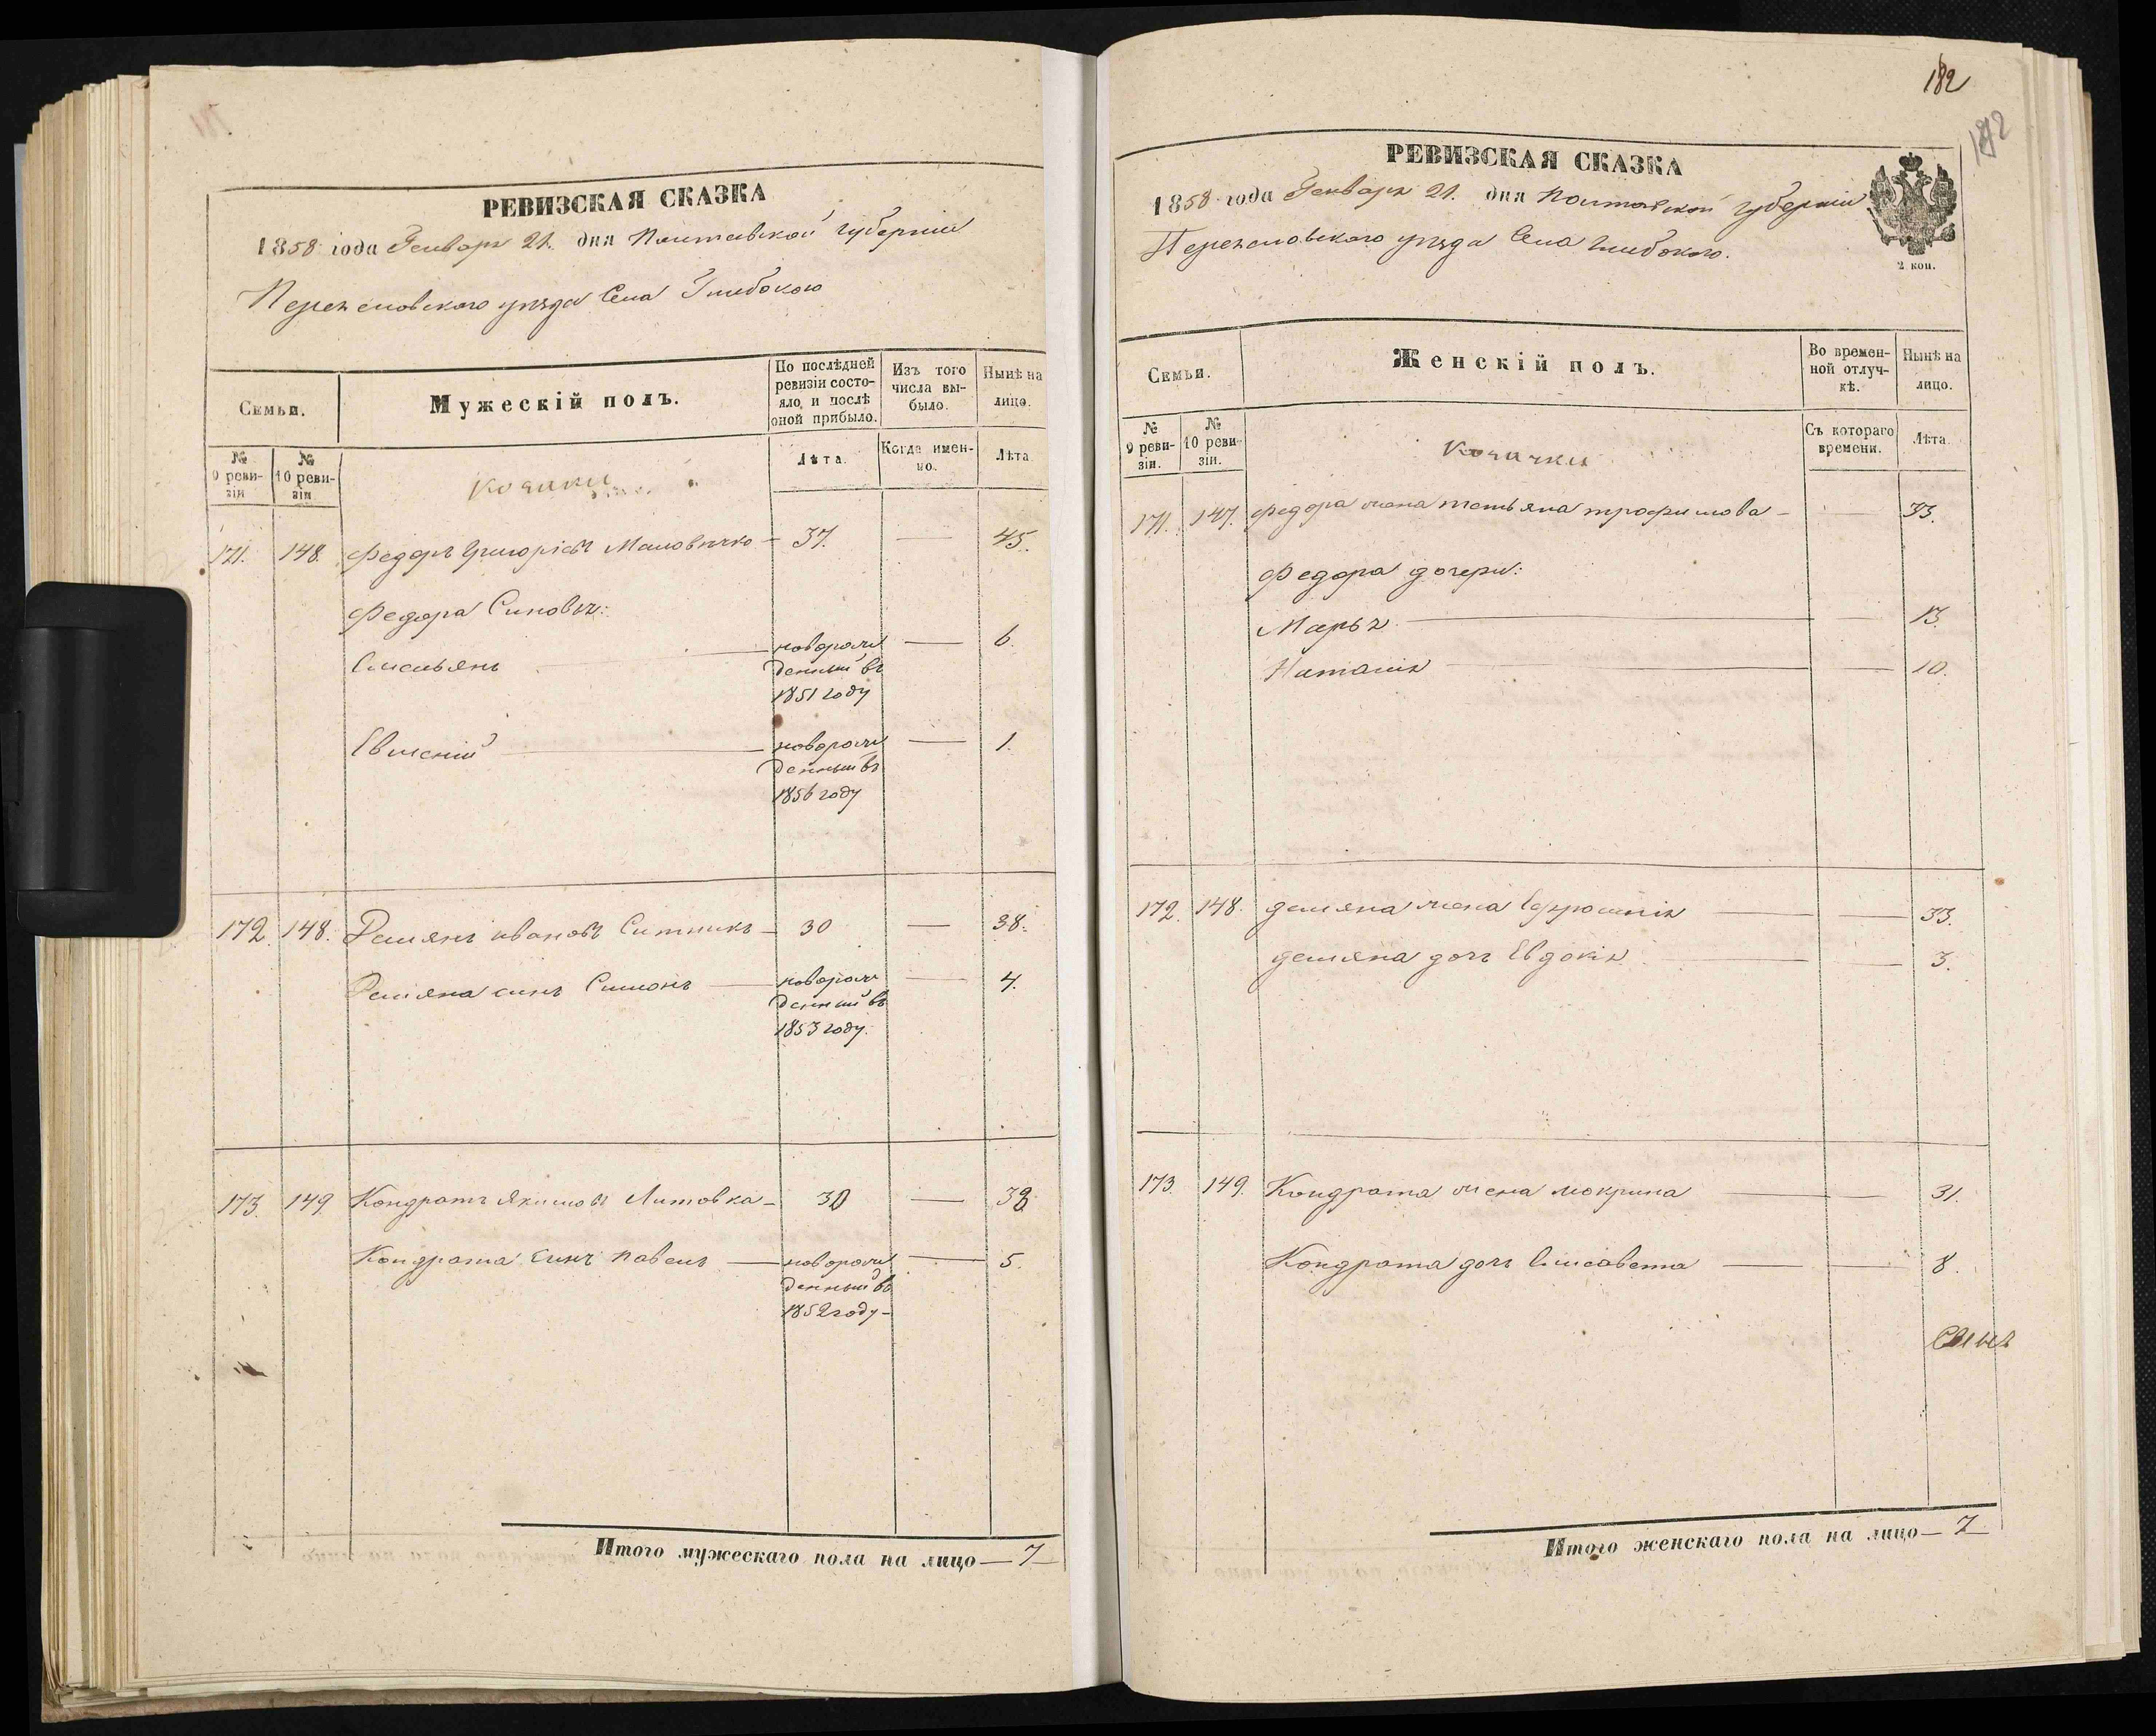 РЕВИЗСКАЯ СКАЗКА
1858 года Генваря 21. дня Полтавской губерніи
Переяславского уѣзда Села Глибокого
Семьи.
Мужескій полъ.
По послѣдней ревизіи состояло, и послѣ оной прибыло.
Изъ того числа выбыло.
Нынѣ на лицо.
№ 9 ревизіи
№ 10 ревизіи
Козаки
Лѣта.
Когда именно.
Лѣта
171. 148. Федоръ Григоріевъ — 37. — 45.
Федора Синовья:
Емельянъ — новорожденный въ 1851 году — 6.
Евмений — новорожденный въ 1856 году — 1.
172. 148. Демянъ Ивановъ Ситникъ — 30 — 38.
Демяна синъ Симонъ — новорожденный въ 1853 году. — 4.
173. 149. Кондратъ Якимовъ Литовка — 30 — 38
Кондрата Синъ Павелъ — новорожденный въ 1852 году — 5.
Итого мужескаго пола на лицо — 7
182
РЕВИЗСКАЯ СКАЗКА
1858 года Генваря 21. дня Полтавской губерніи
Переяславского уѣзда Села Глибокого.
2 коп.
Семьи.
Женскій полъ.
Во временной отлучкѣ.
Нынѣ на лицо.
№ 9 ревизіи.
№ 10 ревизіи.
Козачки
Съ котораго времени.
Лѣта.
171. 147. Федора жена Татьяна Трофимова — 33.
Федора дочери:
Марья — 13.
Наталія — 10.
172. 148. Демяна жена Ефросинія — 33.
Демяна дочь Евдокія — 3.
173. 149. Кондрата жена Мокрина — 31.
Кондрата дочь Елисавета — 8.
Итого женскаго пола на лицо — 7